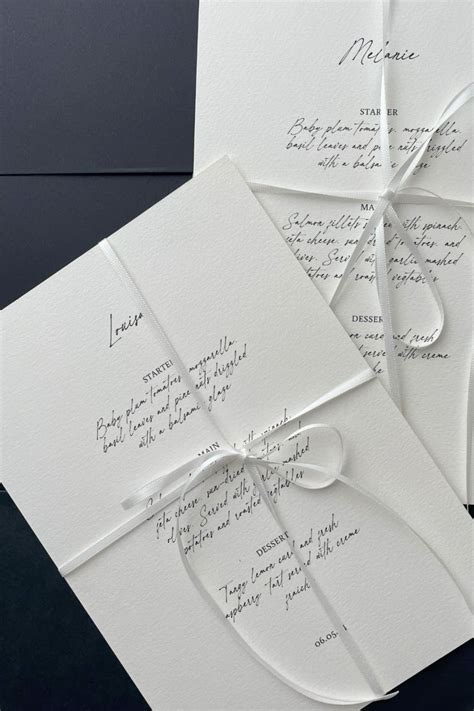 Melanie
STARTER
Baby plum tomatoes, mozzarella
basil leaves and pine nuts drizzled
with a balsamic glaze
MA
Salmon fillets with spinach
feta cheese, sun-dried tomatoes and
olives. Served with garlic mashed
potatoes and roasted vegetables
DESSER
curd and fresh
served with creme
Louisa
STARTER
Baby plum tomatoes, mozzarella
basil leaves and pine nuts drizzled
with a balsamic glaze
MAIN
with spinach
feta cheese, sun-dried tomatoes and
olives. Served with garlic mashed
potatoes and roasted vegetables
DESSERT
Tangy lemon curd and fresh
raspberry tart served with creme
fraich
06.05.